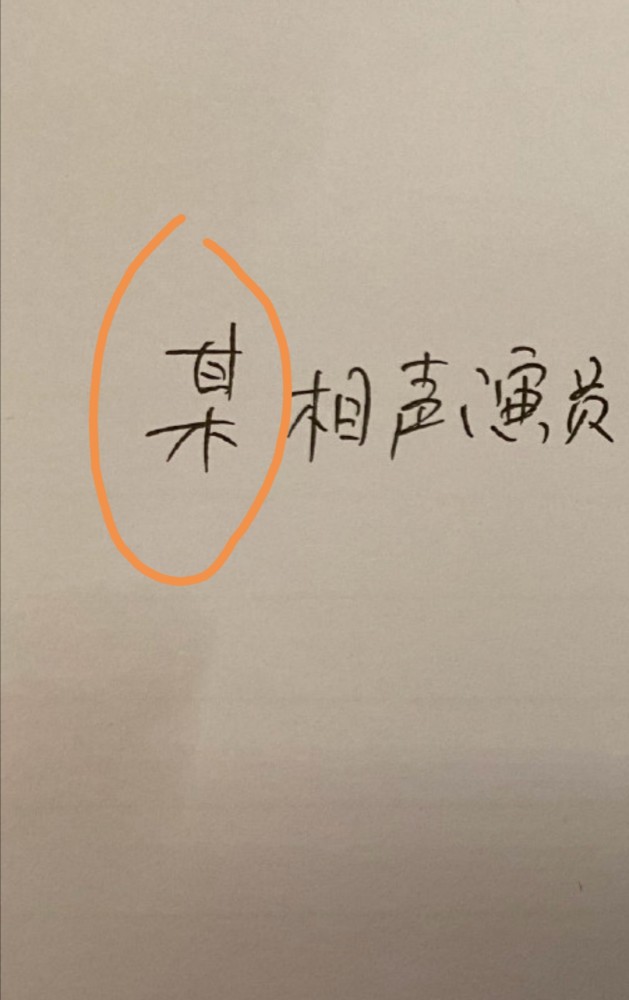 某相声演员